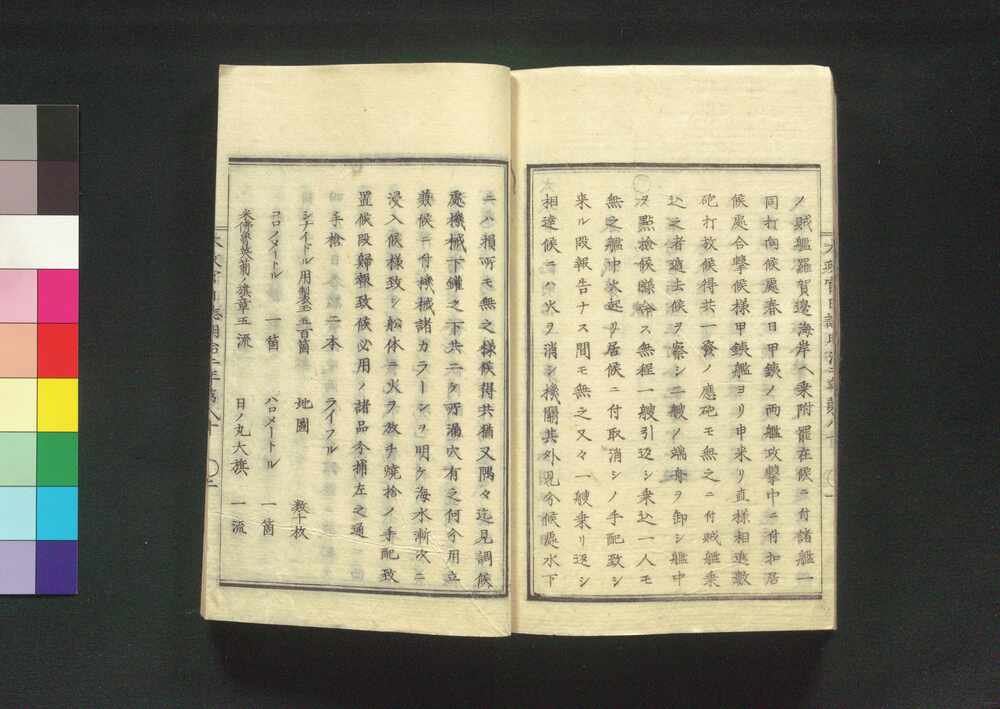 ノ賊艦羅賀邊海岸ヘ乗附罷在候ニ付諸艦一
同打向候處春日甲鉄ノ両艦攻撃中ニ付扣居
候處合撃候様甲鉄艦ヨリ申来リ直様相進数
砲打放候得共一發ノ應砲モ無之ニ付賊艦乗
込之者遁去候ヲ察シ二艘ノ端舟ヲ卸シ艦中
ヲ點檢候際無程一艘引返シ乗込一人モ
無之艦中火起リ居候ニ付取消シノ手配致シ
来ル段報告ナス間モ無之又々一艘乗リ返シ
相達候ニハ火ヲ消シ機關其外見分候處水下
ニハ損所モ無之様候得共猶又隅々迄見調候
處機械下鑵之下共二ケ所漏穴有之何分用立
兼候ニ付機械諸カラーンヲ明ケ海水漸次ニ
浸入候様致シ船体ニ火ヲ放チ燒捨ノ手配致
置候段歸報致候必用ノ諸品分捕左之通
手槍 二本 ライフル 数十枚
シナイドル用製玉五百箇 地圖
コロノメートル 一箇 ハロメートル 一箇
米佛魯英葡ノ旗章五流 日ノ丸大旗 一流